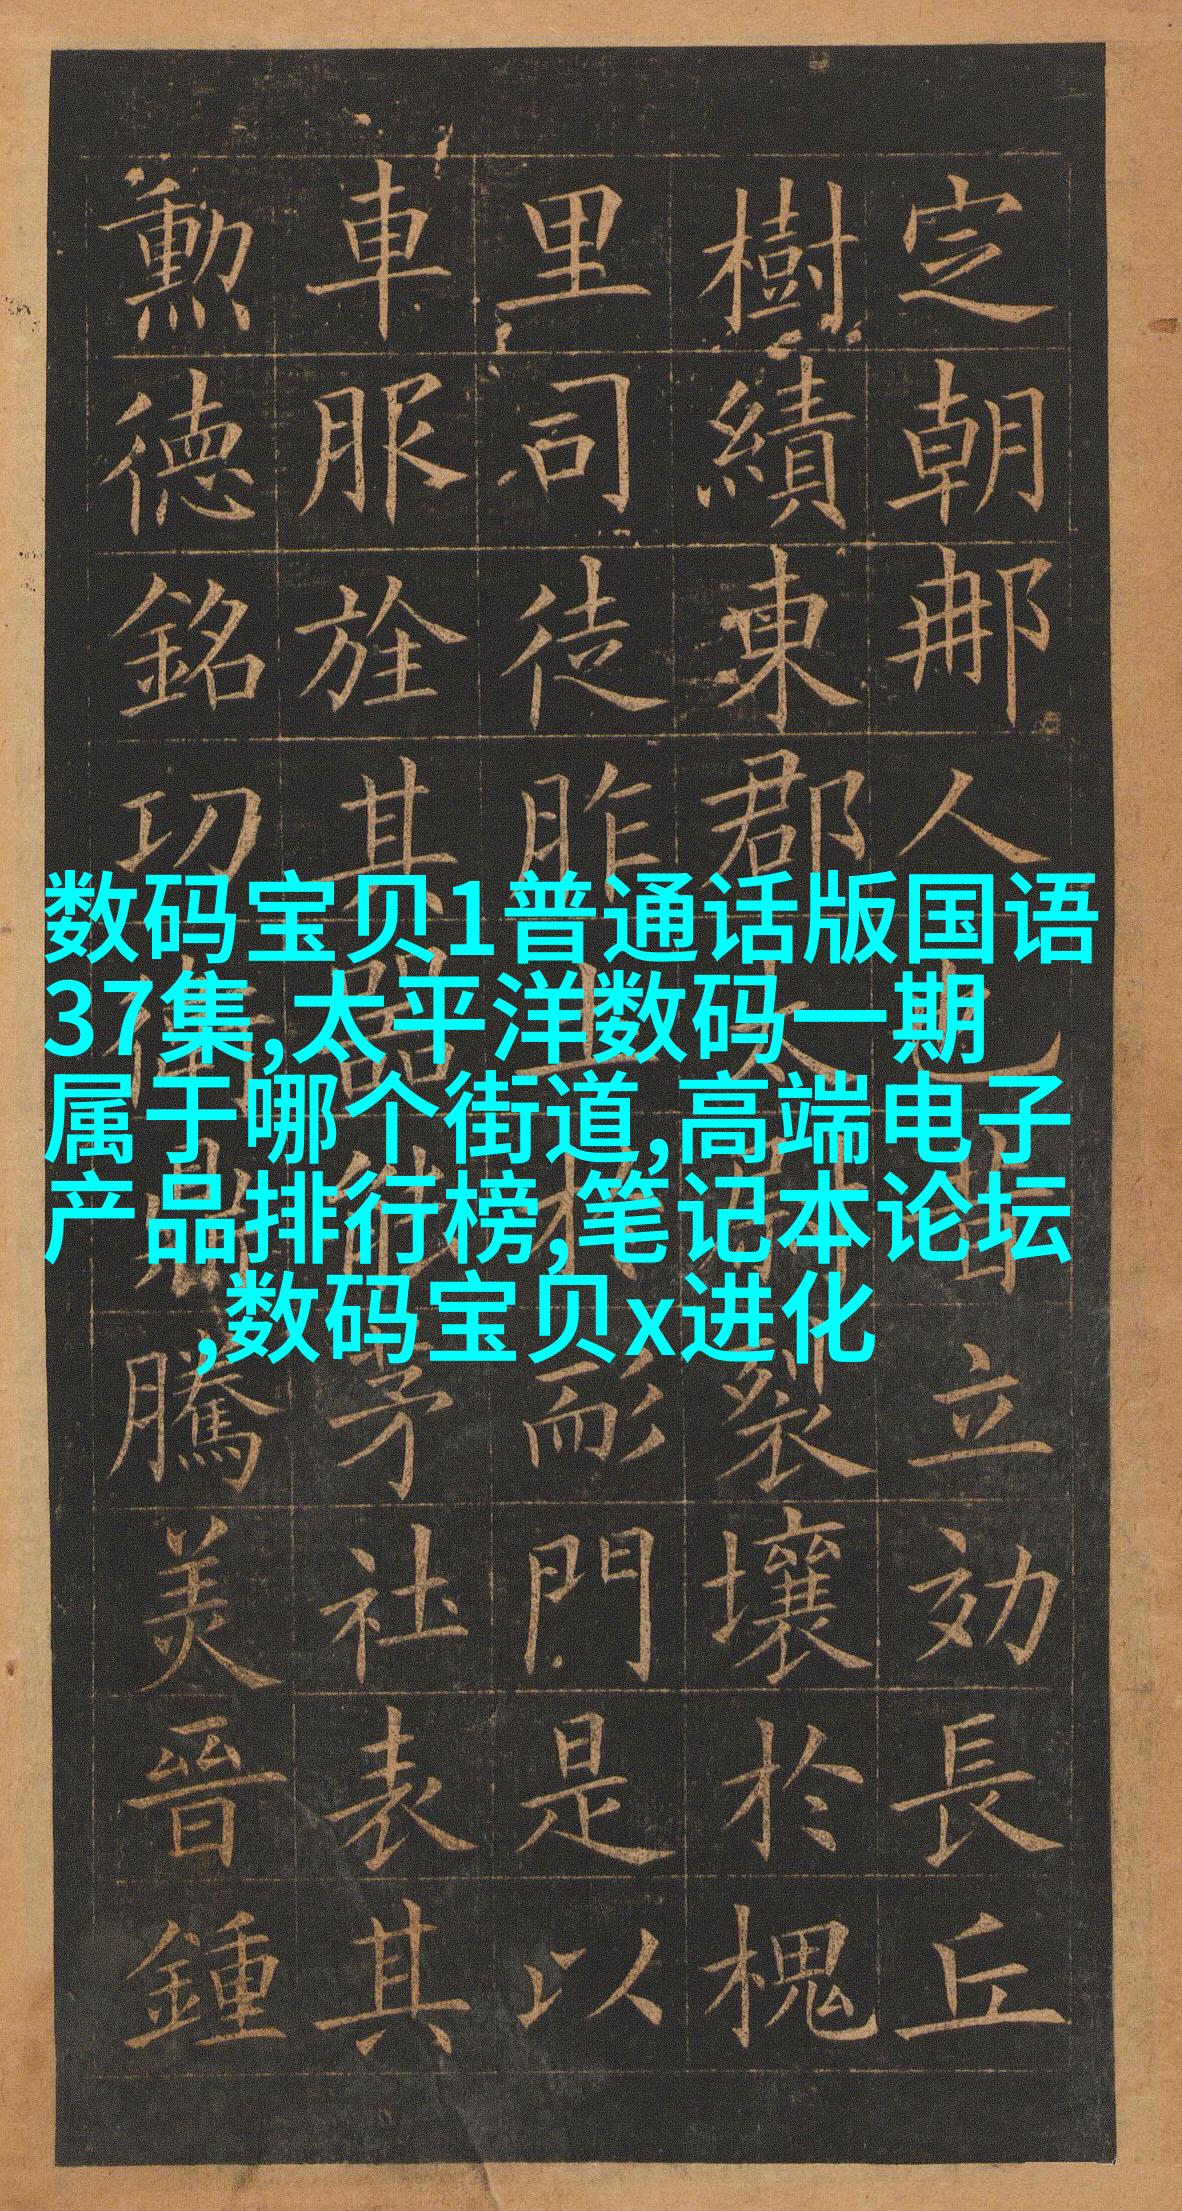 定朝那人也昔立効長丘
樹績東郡太尉裂壤於槐
里司徒胙土於耏門是以
車服旌其器能茅社表其
勲德銘功衛鼎騰美晉鍾
数码宝贝1普通话版国语
37集,太平洋数码一期
属于哪个街道,高端电子
产品排行榜,笔记本论坛
,数码宝贝x进化